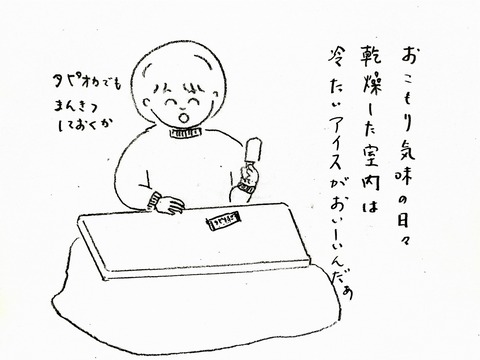 おこもり気味の日々
乾燥した室内は
冷たいアイスがおいーいんだぁ
タピオカでも
まんきつ
しておくか